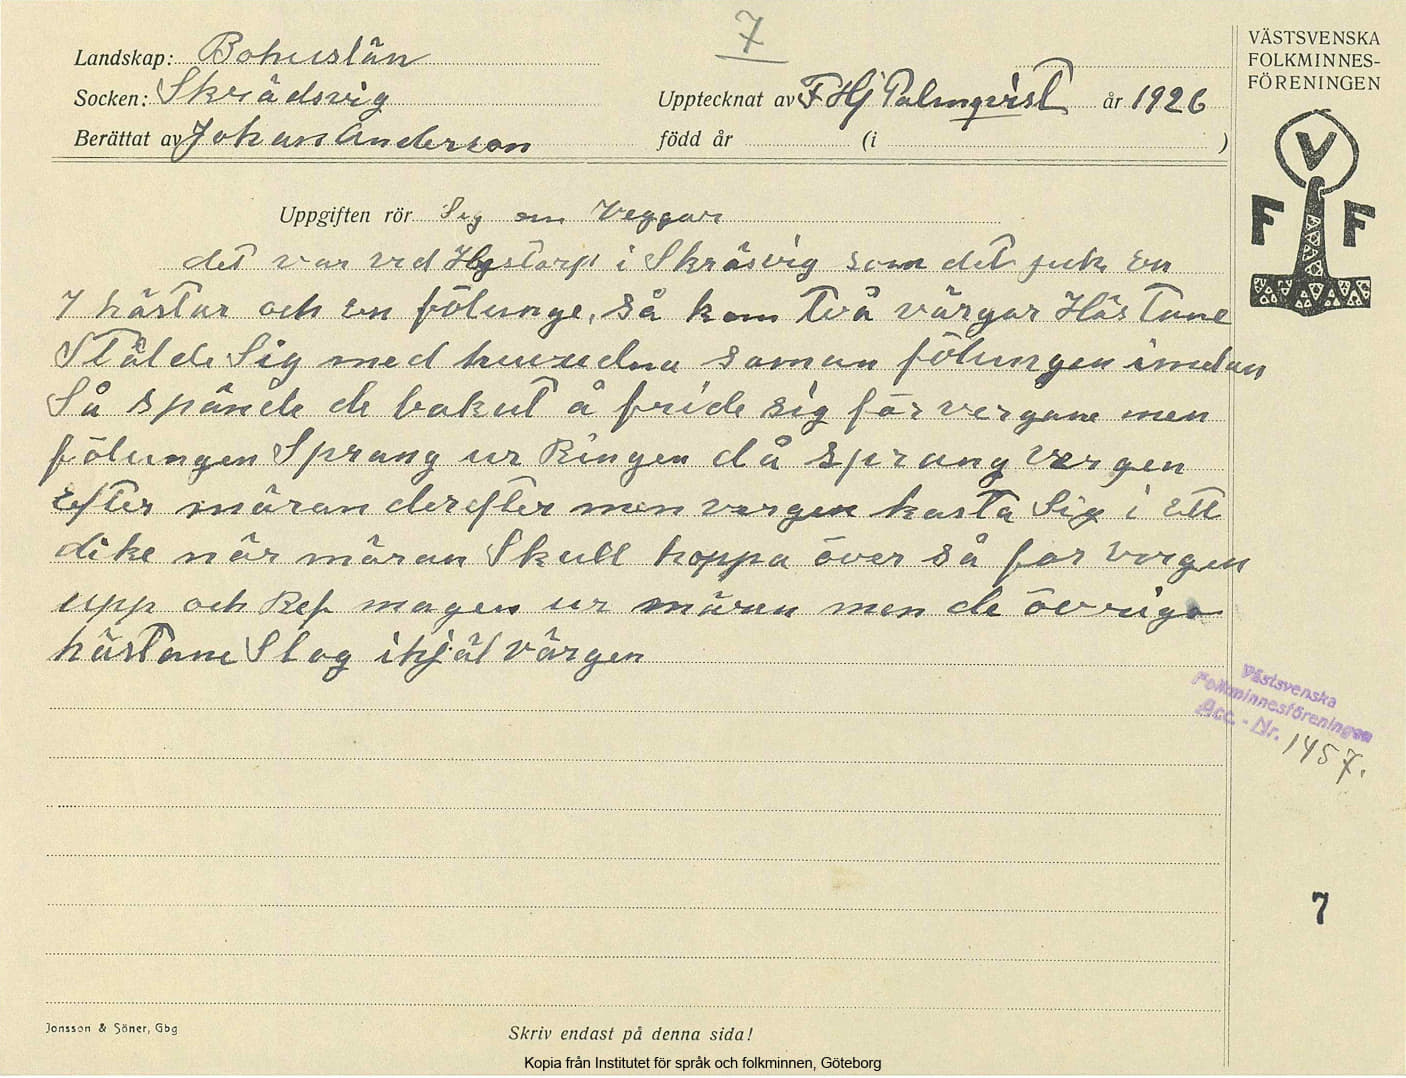 7
Landskap: Bohuslän
Socken: Skrädsvig
Berättat av Johan Anderson
Upptecknat av F Hj Palmqvist år 1926
född år (i )
VÄSTSVENSKA
FOLKMINNES-
FÖRENINGEN
V
F F
Uppgiften rör Seg om Veggar
det var ved Hogstorp i Skräsvig som det juk en
7 hästar och en fölunge, så kom två värgar Hästane
Stälde Sig med huvudna saman fölungen imelan
Så spände de bakut å fride sig för vergane men
fölungen Sprang ur Ringen då sprang vergen
efter märan derefter men vergen kasta Sig i ett
dike när märan Skull hoppa över så for vergen
upp och Ref magen ur märan men de övriga
hästane Slog ihjäl värgen
Västsvenska
Folkminnesföreningen
Acc. - Nr. 1457.
7
Jonsson & Söner, Gbg
Skriv endast på denna sida!
Kopia från Institutet för språk och folkminnen, Göteborg